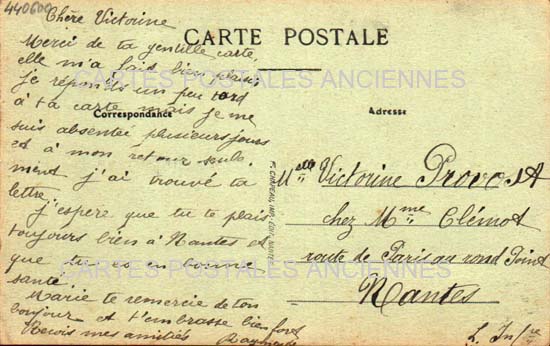 440600
Chère Victorine
Merci de ta gentille carte
elle m'a fais bien plaisir
je réponds un peu tard
à ta carte mais je me
suis absentée plusieurs jours
et à mon retour seule
ment j'ai trouvé ta
lettre.
j'espère que tu te plais
toujours bien à Nantes et
que tu es en bonne
santé.
Marie te remercie de ton
bonjour et t'embrasse bien fort
Reçois mes amitiés Raymonde
CARTE POSTALE
CARTES POSTALES ANCIENNES
Correspondance
Adresse
CARTES POSTALES ANCIENNES
CARTES POSTALES ANCIENNES
Melle Victorine Provost
chez Mme Clémot
route de Paris au rond Point
Nantes
L. Infre